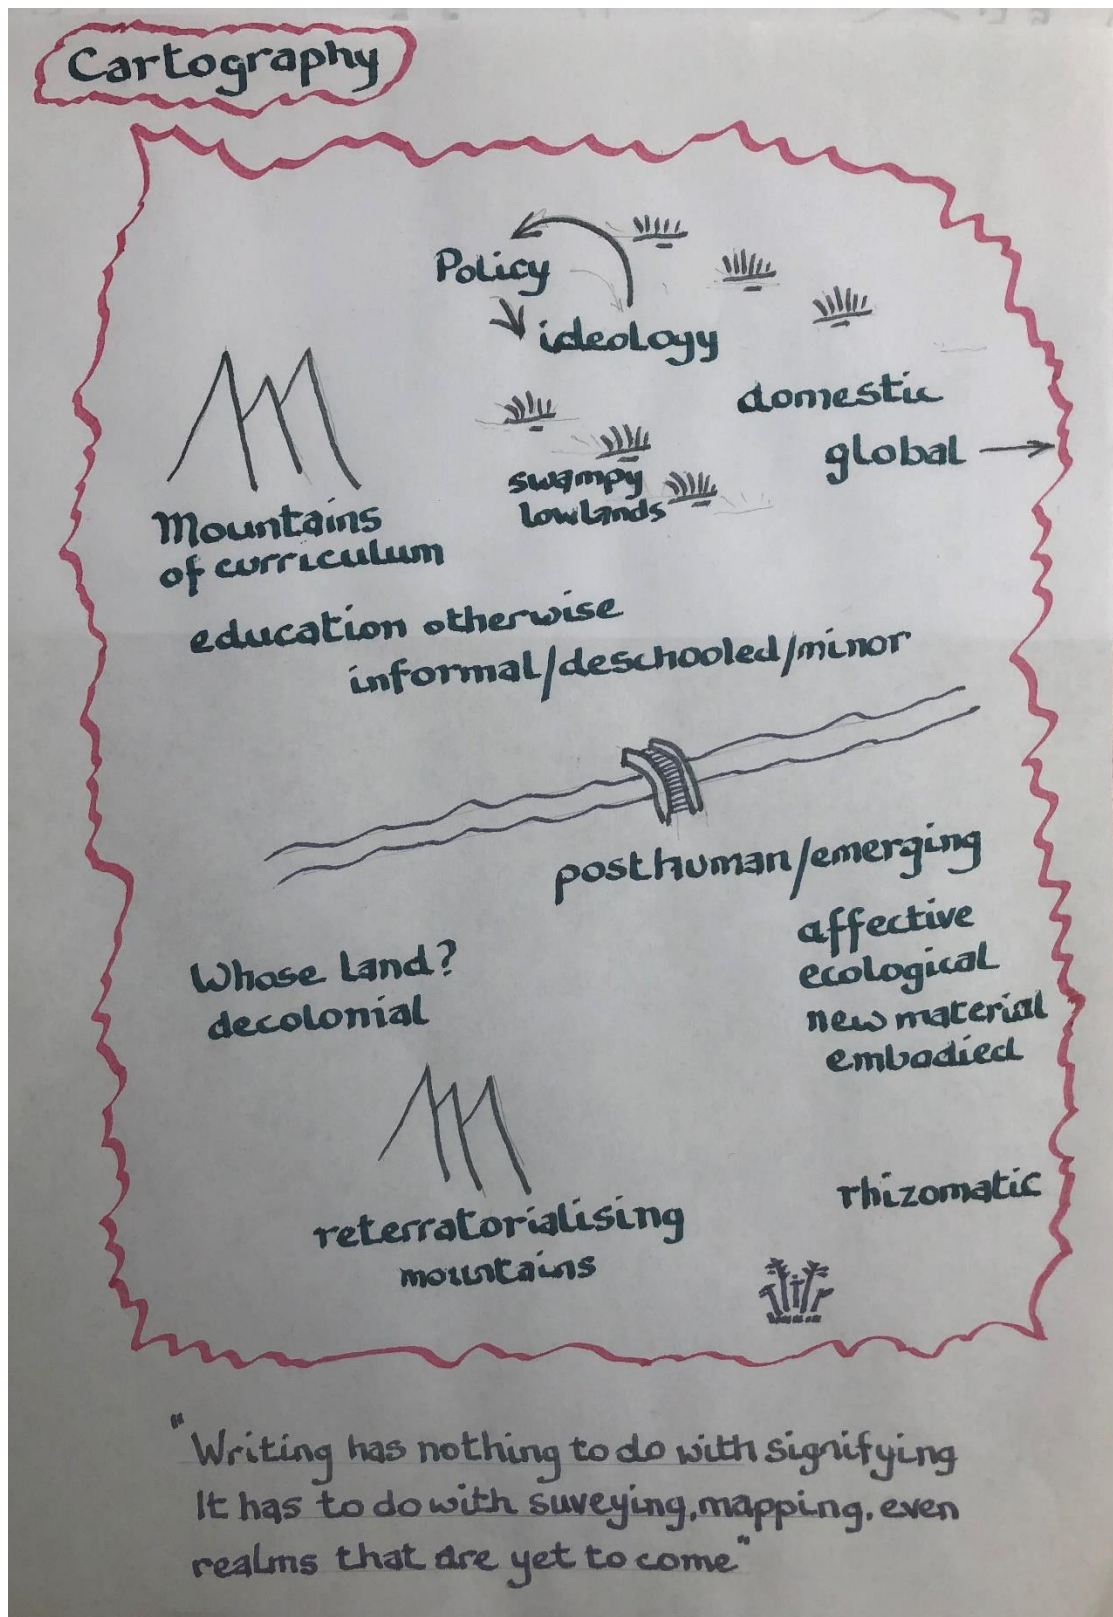 Cartography
Policy
ideology
domestic
global
swampy
lowlands
Mountains
of curriculum
education otherwise
informal/deschooled/minor
posthuman/emerging
affective
ecological
new material
embodied
Whose Land?
decolonial
rhizomatic
reterratorialising
mountains
"Writing has nothing to do with signifying
It has to do with suveying, mapping, even
realms that are yet to come"